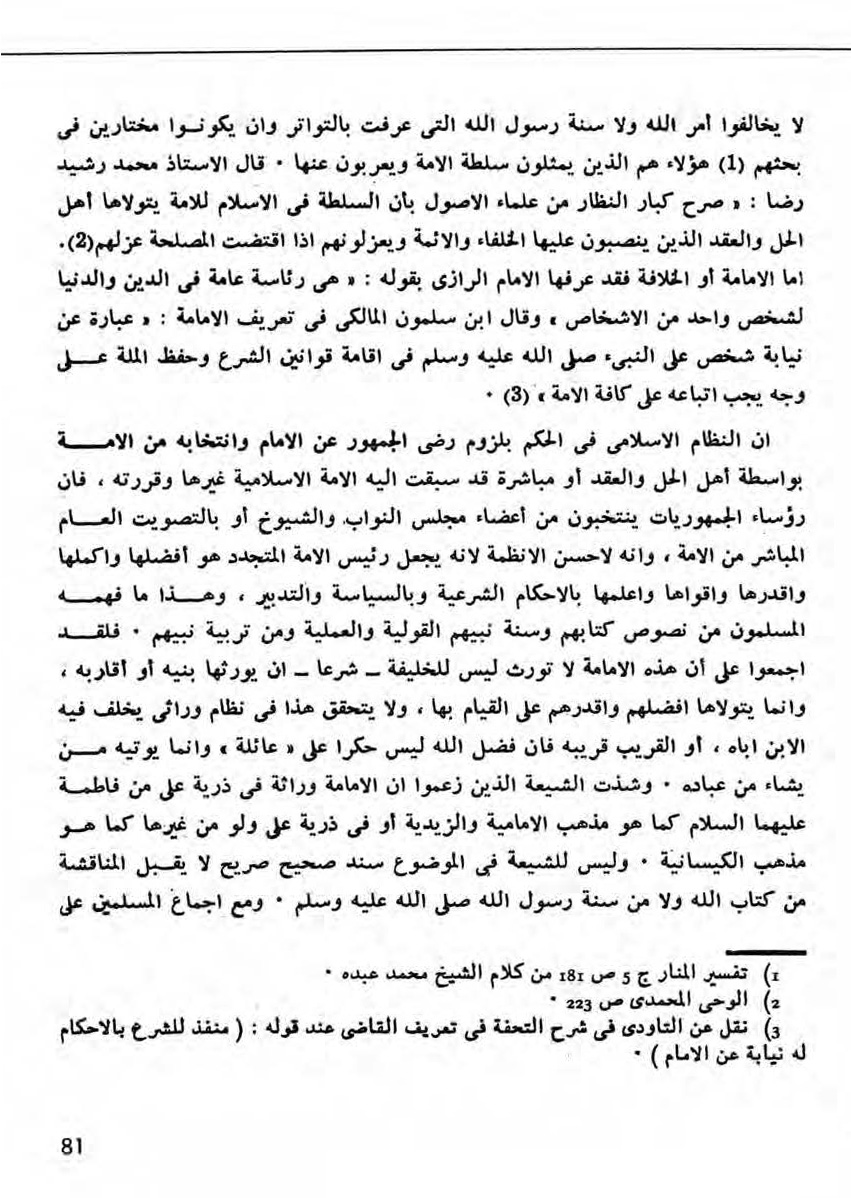 لا يخالفوا أمر الله ولا سنة رسول الله التى عرفت بالتواتر وان يكونـوا مختارين فى
بحثهم (1) هؤلاء هم الذين يمثلون سلطة الامة ويعربون عنها · قال الاستاذ محمد رشيد
رضا : « صرح كبار النظار من علماء الاصول بأن السلطة فى الاسلام للامة يتولاها أهل
الحل والعقد الذين ينصبون عليها الخلفاء والائمة ويعزلونهم اذا اقتضت المصلحة عزلهم(2).
اما الامامة أو الخلافة فقد عرفها الامام الرازى بقوله : « هى رئاسة عامة فى الدين والدنيا
لشخص واحد من الاشخاص » وقال ابن سلمون المالكى فى تعريف الامامة : « عبارة عن
نيابة شخص على النبىء صلى الله عليه وسلم فى اقامة قوانين الشرع وحفظ الملة عـــلى
وجه يجب اتباعه على كافة الامة » (3) ·
ان النظام الاسلامى فى الحكم بلزوم رضى الجمهور عن الامام وانتخابه من الامـــــة
بواسطة أهل الحل والعقد أو مباشرة قد سبقت اليه الامة الاسلامية غيرها وقررته ، فان
رؤساء الجمهوريات ينتخبون من أعضاء مجلس النواب والشيوخ أو بالتصويت العـــام
المباشر من الامة ، وانه لاحسن الانظمة لانه يجعل رئيس الامة المتجدد هو أفضلها واكملها
واقدرها واقواها واعلمها بالاحكام الشرعية وبالسياسة والتدبير ، وهـــذا ما فهمـــه
المسلمون من نصوص كتابهم وسنة نبيهم القولية والعملية ومن تربية نبيهم · فلقـــد
اجمعوا على أن هذه الامامة لا تورث ليس للخليفة ــ شرعا ــ ان يورثها بنيه أو أقاربه ،
وانما يتولاها افضلهم واقدرهم على القيام بها ، ولا يتحقق هذا فى نظام وراثى يخلف فيه
الابن اباه ، أو القريب قريبه فان فضل الله ليس حكرا على « عائلة » وانما يوتيه مـــن
يشاء من عباده · وشذت الشيعة الذين زعموا ان الامامة وراثة فى ذرية على من فاطمـة
عليهما السلام كما هو مذهب الامامية والزيدية أو فى ذرية على ولو من غيرها كما هـو
مذهب الكيسانية · وليس للشيعة فى الموضوع سند صحيح صريح لا يقـبل المناقشة
من كتاب الله ولا من سنة رسول الله صلى الله عليه وسلم · ومع اجماع المسلمين على
1) تفسير المنار ج 5 ص 181 من كلام الشيخ محمد عبده ·
2) الوحى المحمدى ص 223 ·
3) نقل عن التاودى فى شرح التحفة فى تعريف القاضى عند قوله : ( منفذ للشرع بالاحكام
له نيابة عن الامام ) ·
81